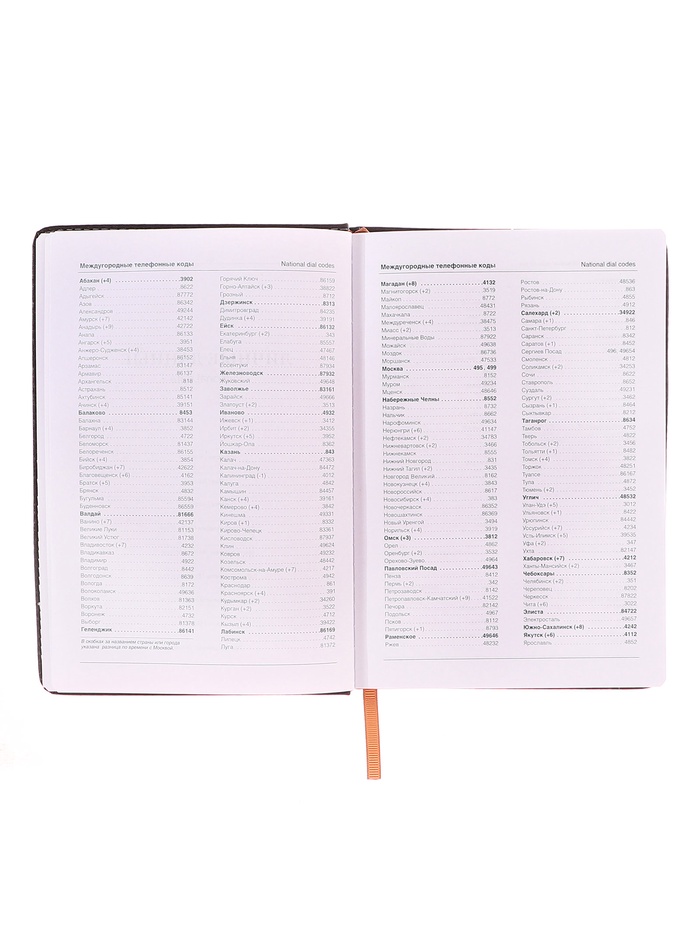 Междугородные телефонные коды
National dial codes
Абакан (+4) 3902
Адлер 8622
Адыгейск 87772
Азов 86342
Александров 49244
Амурск (+7) 42142
Анадырь (+9) 42722
Анапа
Ангарск (+5) 3951
Анжеро-Судженск (+4) 38453
Апшеронск 86152
Арзамас 83147
Армавир 86137
Архангельск 818
Астрахань 8512
Ахтубинск 85141
Ачинск (+4) 39151
Балаково 8453
Балахна 83144
Барнаул (+4) 3852
Белгород 4722
Белорецк
Белореченск 86155
Бийск (+4) 3854
Биробиджан (+7) 42622
Благовещенск (+6) 4162
Братск (+5) 3953
Брянск 4832
Бугульма 85594
Буденновск 86559
Валдай 81666
Ванино (+7) 42137
Великие Луки 81153
Великий Устюг 81738
Владивосток (+7) 4232
Владикавказ 8672
Владимир 4922
Волгоград 8442
Волгодонск 8639
Вологда 8172
Волоколамск 49636
Волхов 81363
Воркута 82151
Воронеж 4732
Выборг 81378
Геленджик 86141
В скобках за названием страны или города
указана разница по времени с Москвой.
Горячий Ключ 86159
Горно-Алтайск (+3) 38822
Грозный 8712
Дзержинск 8313
Димитровград 84235
Дудинка (+4) 39191
Ейск 86132
Екатеринбург (+2) 343
Елабуга 85557
Елец 47467
Ельня 48146
Ессентуки 87934
Железноводск 87932
Жуковский 49648
Заволжье 83161
Зарайск 49666
Златоуст (+2) 3513
Иваново 4932
Ижевск (+1) 3412
Ирбит (+2) 34355
Иркутск (+5) 3952
Йошкар-Ола 8362
Казань 843
Калач 47363
Калач-на-Дону 84472
Калининград (-1) 4012
Калуга 4842
Камышин 84457
Канск (+4) 39161
Кемерово (+4) 3842
Кинешма 49331
Киров (+1) 8332
Кирово-Чепецк 83361
Кисловодск 87937
Клин 49624
Ковров 49232
Козельск 48442
Комсомольск-на Амуре (+7) 4217
Кострома 4942
Краснодар 861
Красноярск (+4) 391
Кудымкар (+2) 34260
Курган (+2) 3522
Курск 4712
Кызыл (+4) 39422
Лабинск 86169
Липецк 4742
Луга 81372
Междугородные телефонные коды
National dial codes
Магадан (+8) 4132
Магнитогорск (+2) 3519
Майкоп 8772
Малоярославец 48431
Махачкала 8722
Междуреченск (+4) 38475
Миасс (+2) 3513
Минеральные Воды 87922
Можайск 49638
Моздок 86736
Моршанск 47533
Москва 495, 499
Мурманск 8152
Муром 49234
Мценск 48646
Набережные Челны 8552
Назрань 8732
Нальчик 8662
Нарофоминск 49634
Нерюнгри (+6) 41147
Нефтекамск (+2) 34783
Нижневартовск (+2) 3466
Нижнекамск 8555
Нижний Новгород 831
Нижний Тагил (+2) 3435
Новгород Великий 8162
Новокузнецк (+4) 3843
Новороссийск 8617
Новосибирск (+4) 383
Новочеркасск 86352
Новошахтинск 86369
Новый Уренгой 3494
Норильск (+4) 3919
Омск (+3) 3812
Орел 4862
Оренбург (+2) 3532
Орехово-Зуево 4964
Павловский Посад 49643
Пенза 8412
Пермь (+2) 342
Петрозаводск 8142
Петропавловск-Камчатский (+9) 41522
Печора 82142
Подольск 4967
Псков 8112
Пятигорск (+1) 8793
Раменское 49646
Ржев 48232
Ростов 48536
Ростов-на-Дону 863
Рыбинск 4855
Рязань 4912
Салехард (+2) 34922
Самара (+1) 846
Санкт-Петербург 812
Саранск 8342
Саратов (+1) 8452
Сергиев Посад 496, 49654
Смоленск 4812
Соликамск (+2) 34253
Сочи 8622
Ставрополь 8652
Суздаль 49231
Сургут (+2) 3462
Сызрань (+1) 8464
Сыктывкар 8212
Таганрог 8634
Тамбов 4752
Тверь 4822
Тобольск (+2) 3456
Тольятти (+1) 8482
Томск (+4) 3822
Торжок 48251
Туапсе 86167
Тула 4872
Тюмень (+2) 3452
Углич 48532
Улан-Удэ (+5) 3012
Ульяновск (+1) 8422
Урюпинск 84442
Уссурийск (+7) 4234
Усть-Илимск (+5) 39535
Уфа (+2) 347
Ухта 82147
Хабаровск (+7) 4212
Ханты-Мансийск (+2) 3467
Чебоксары 8352
Челябинск (+2) 351
Череповец 8202
Черкесск 87822
Чита (+6) 3022
Элиста 84722
Электросталь 49657
Южно-Сахалинск (+8) 4242
Якутск (+6) 4112
Ярославль 4852